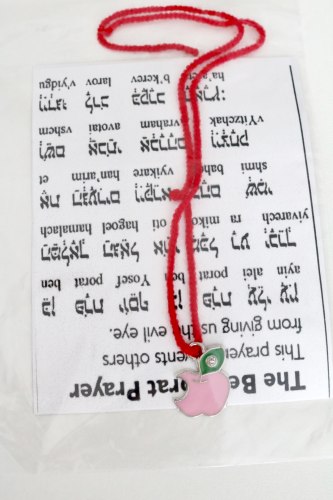 The Be orat Prayer
This prayer vents others
from giving us the evil eye.
בֵּן פֹּרָת יוֹסֵף בֵּן פֹּרָת עֲלֵי עָיִן
ayin alei porat ben Yosef porat ben
הַמַּלְאָךְ הַגֹּאֵל אֹתִי מִכָּל רָע יְבָרֵךְ
yivarech ra mikol oti hagoel hamalach
אֶת הַנְּעָרִים וְיִקָּרֵא בָהֶם שְׁמִי
shmi bahem vyikare han'arim et
וְשֵׁם אֲבֹתַי אַבְרָהָם וְיִצְחָק
vYitzchak vraham avotai vshem
וְיִדְגּוּ לָרֹב בְּקֶרֶב הָאָרֶץ:
b'kerev larov v'yidgu